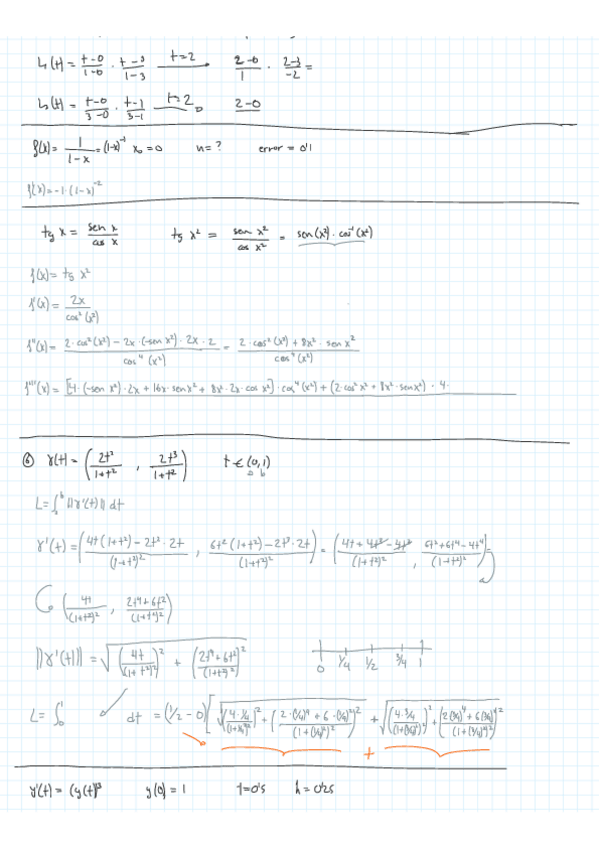 L₁(t) = (t-0)/(1-0) · (t-3)/(1-3) —t=2→ (2-0)/1 · (2-3)/(-2) =
L₃(t) = (t-0)/(3-0) · (t-1)/(3-1) —t=2→ (2-0)
f(x) = 1/(1-x) = (1-x)⁻¹ x₀=0 n=? error = 0'1
f'(x) = -1·(1-x)⁻²
tg x = sen x/cos x tg x² = sen x²/cos x² = sen(x²)·cos⁻¹(x²)
f(x) = tg x²
f'(x) = 2x/cos²(x²)
f''(x) = (2·cos²(x²) - 2x·(-sen x²)·2x·2)/cos⁴(x²) = (2·cos²(x²) + 8x²·sen x²)/cos⁴(x²)
f'''(x) = [4·(-sen x²)·2x + 16x·sen x² + 8x²·2x·cos x²]·cos⁴(x²) + (2cos²x² + 8x²·senx²)·4·
⑥ γ(t) = (2t²/(1+t²), 2t³/(1+t²)) t ∈ (0,1)
a b
L = ∫ₐᵇ ||γ'(t)|| dt
γ'(t) = ((4t(1+t²) - 2t²·2t)/(1+t²)², (6t²(1+t²) - 2t³·2t)/(1+t²)²) = ((4t + 4t³ - 4t³)/(1+t²)², (6t² + 6t⁴ - 4t⁴)/(1+t²)²)
(4t/(1+t²)², (2t⁴ + 6t²)/(1+t²)²)
||γ'(t)|| = √((4t/(1+t²)²)² + ((2t⁴ + 6t²)/(1+t²)²)²)
0 1/4 1/2 3/4 1
L = ∫₀¹ √ dt = (1/2 - 0) [√((4·1/4/(1+(1/4)²)²)² + ((2·(1/4)⁴ + 6·(1/4)²)/(1+(1/4)²)²)²) + √((4·3/4/(1+(3/4)²)²)² + ((2(3/4)⁴ + 6(3/4)²)/(1+(3/4)²)²)²)
+
y'(t) = (y(t))³ y(0) = 1 t=0'5 h=0'25